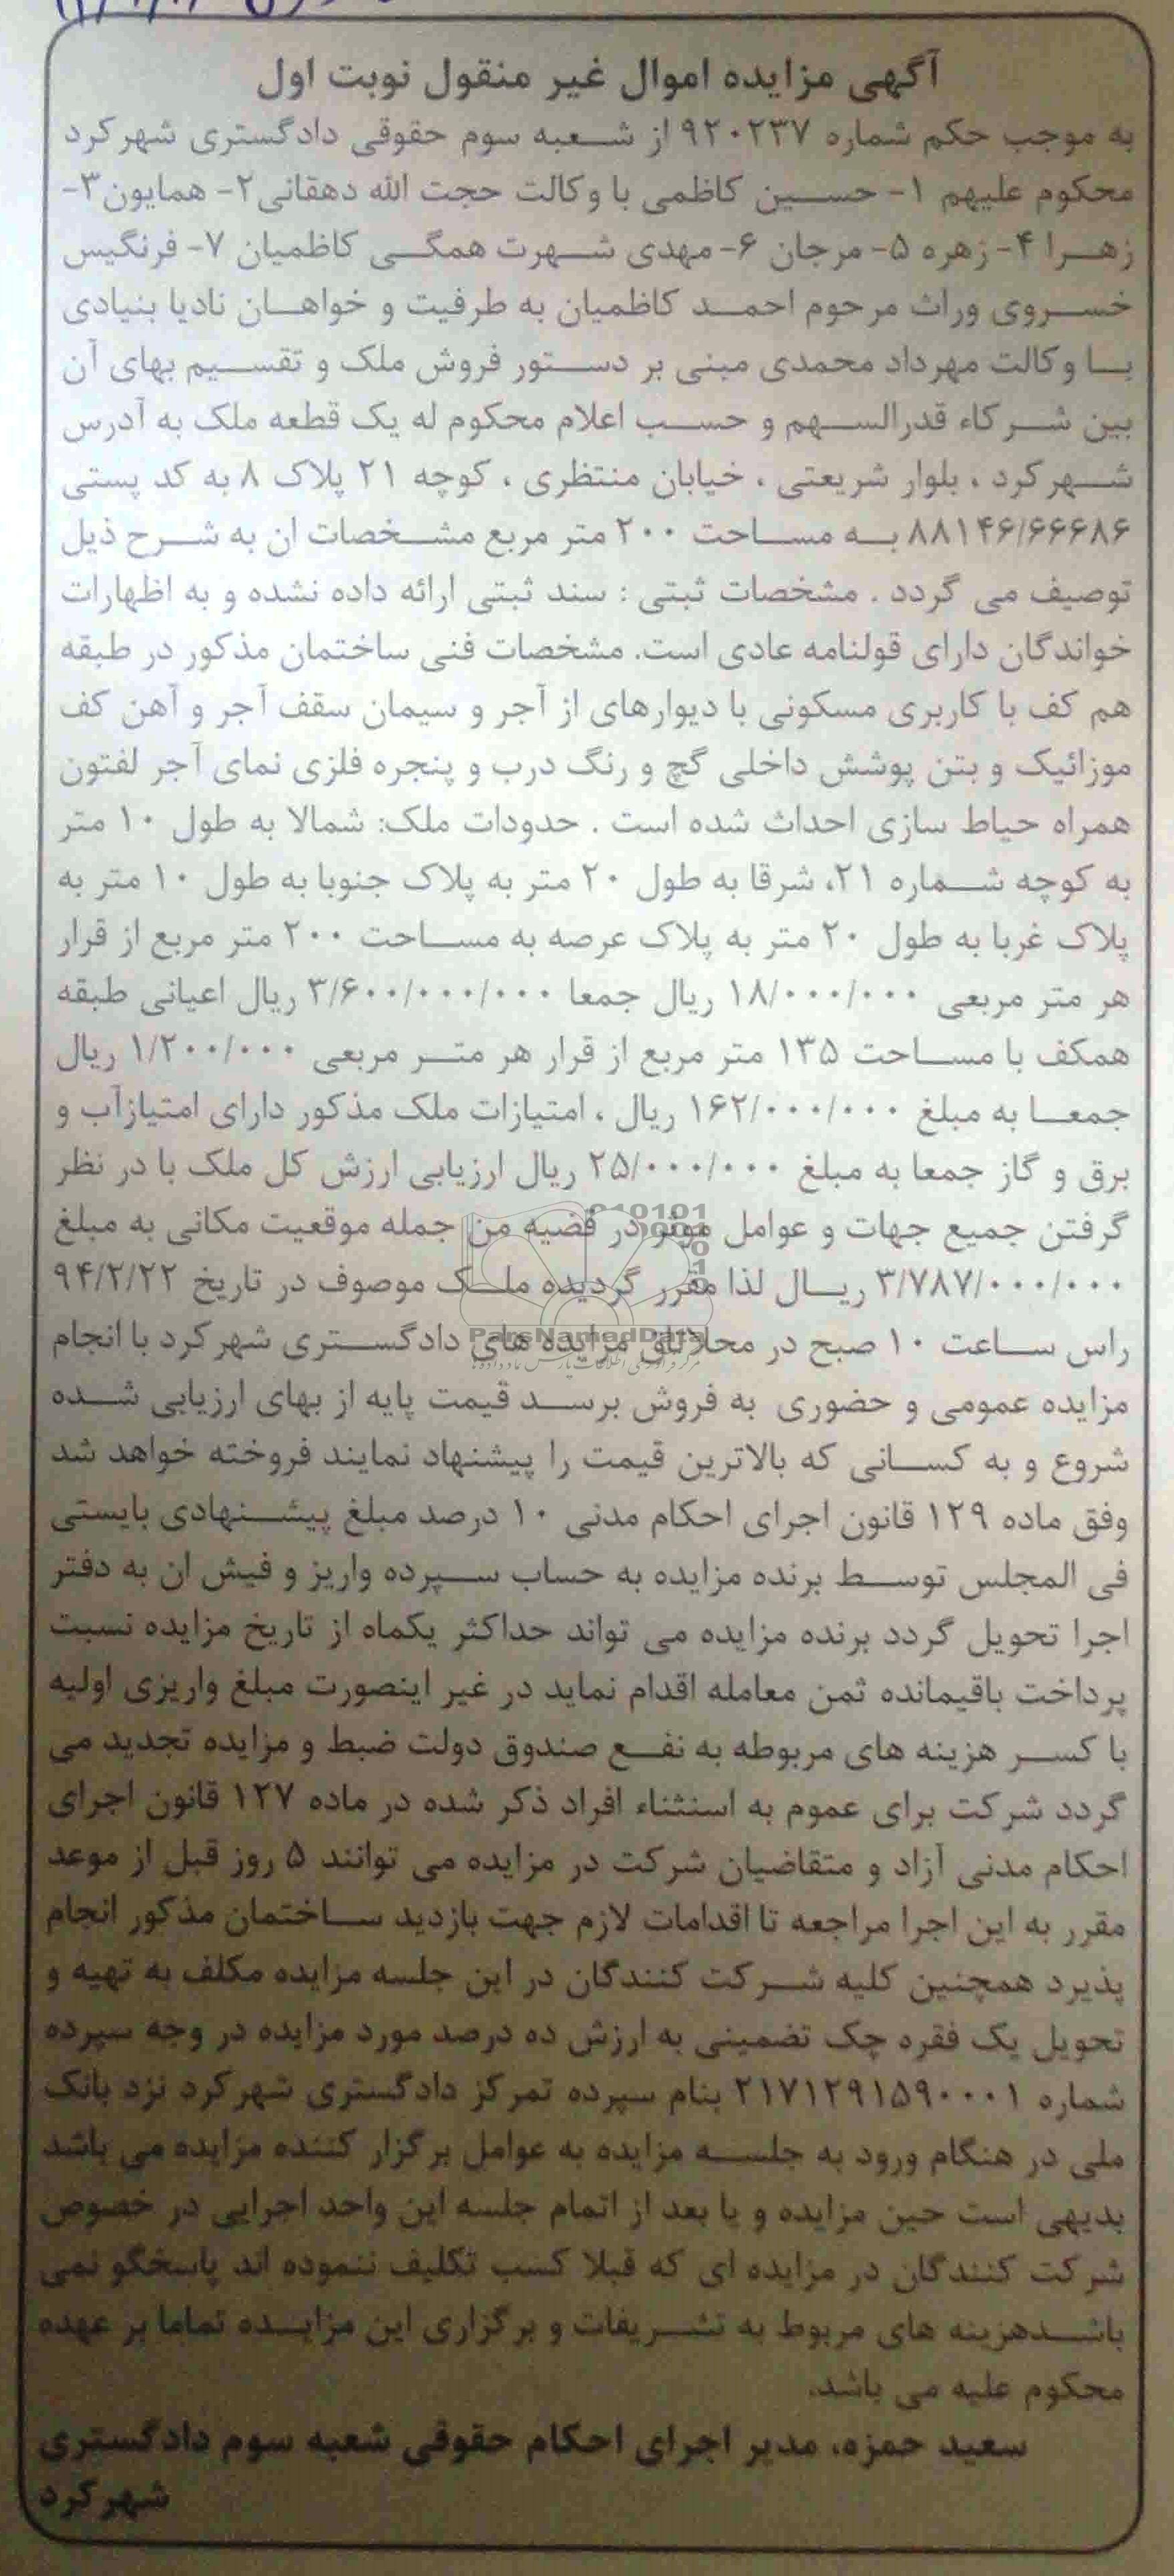 آگهی مزایده اموال غیر منقول نوبت اول
به موجب حکم شماره ۹۲۰۲۳۷ از شعبه سوم حقوقی دادگستری شهرکرد
محکوم علیهم ۱- حسین کاظمی با وکالت حجت الله دهقانی۲- همایون۳-
زهرا ۴- زهره ۵- مرجان ۶- مهدی شهرت همگی کاظمیان ۷- فرنگیس
خسروی وراث مرحوم احمد کاظمیان به طرفیت و خواهان نادیا بنیادی
با وکالت مهرداد محمدی مبنی بر دستور فروش ملک و تقسیم بهای آن
بین شرکاء قدرالسهم و حسب اعلام محکوم له یک قطعه ملک به آدرس
شهرکرد ، بلوار شریعتی ، خیابان منتظری ، کوچه ۲۱ پلاک ۸ به کد پستی
۸۸۱۴۶/۶۶۶۸۶ به مساحت ۲۰۰ متر مربع مشخصات ان به شرح ذیل
توصیف می گردد . مشخصات ثبتی : سند ثبتی ارائه داده نشده و به اظهارات
خواندگان دارای قولنامه عادی است. مشخصات فنی ساختمان مذکور در طبقه
هم کف با کاربری مسکونی با دیوارهای از آجر و سیمان سقف آجر و آهن کف
موزائیک و بتن پوشش داخلی گچ و رنگ درب و پنجره فلزی نمای آجر لفتون
همراه حیاط سازی احداث شده است . حدودات ملک: شمالا به طول ۱۰ متر
به کوچه شماره ۲۱، شرقا به طول ۲۰ متر به پلاک جنوبا به طول ۱۰ متر به
پلاک غربا به طول ۲۰ متر به پلاک عرصه به مساحت ۲۰۰ متر مربع از قرار
هر متر مربعی ۱۸/۰۰۰/۰۰۰ ریال جمعا ۳/۶۰۰/۰۰۰/۰۰۰ ریال اعیانی طبقه
همکف با مساحت ۱۳۵ متر مربع از قرار هر متر مربعی ۱/۲۰۰/۰۰۰ ریال
جمعا به مبلغ ۱۶۲/۰۰۰/۰۰۰ ریال ، امتیازات ملک مذکور دارای امتیازآب و
برق و گاز جمعا به مبلغ ۲۵/۰۰۰/۰۰۰ ریال ارزیابی ارزش کل ملک با در نظر
گرفتن جمیع جهات و عوامل موثر در قضیه من جمله موقعیت مکانی به مبلغ
۳/۷۸۷/۰۰۰/۰۰۰ ریال لذا مقرر گردیده ملک موصوف در تاریخ ۹۴/۲/۲۲
راس ساعت ۱۰ صبح در محلاتاق مزایده های دادگستری شهرکرد با انجام
مزایده عمومی و حضوری به فروش برسد قیمت پایه از بهای ارزیابی شده
شروع و به کسانی که بالاترین قیمت را پیشنهاد نمایند فروخته خواهد شد
وفق ماده ۱۲۹ قانون اجرای احکام مدنی ۱۰ درصد مبلغ پیشنهادی بایستی
فی المجلس توسط برنده مزایده به حساب سپرده واریز و فیش ان به دفتر
اجرا تحویل گردد برنده مزایده می تواند حداکثر یکماه از تاریخ مزایده نسبت
پرداخت باقیمانده ثمن معامله اقدام نماید در غیر اینصورت مبلغ واریزی اولیه
با کسر هزینه های مربوطه به نفع صندوق دولت ضبط و مزایده تجدید می
گردد شرکت برای عموم به استثناء افراد ذکر شده در ماده ۱۲۷ قانون اجرای
احکام مدنی آزاد و متقاضیان شرکت در مزایده می توانند ۵ روز قبل از موعد
مقرر به این اجرا مراجعه تا اقدامات لازم جهت بازدید ساختمان مذکور انجام
پذیرد همچنین کلیه شرکت کنندگان در این جلسه مزایده مکلف به تهیه و
تحویل یک فقره چک تضمینی به ارزش ده درصد مورد مزایده در وجه سپرده
شماره ۲۱۷۱۲۹۱۵۹۰۰۰۱ بنام سپرده تمرکز دادگستری شهرکرد نزد بانک
ملی در هنگام ورود به جلسه مزایده به عوامل برگزار کننده مزایده می باشد
بدیهی است حین مزایده و یا بعد از اتمام جلسه این واحد اجرایی در خصوص
شرکت کنندگان در مزایده ای که قبلا کسب تکلیف ننموده اند پاسخگو نمی
باشدهزینه های مربوط به تشریفات و برگزاری این مزایده تماما بر عهده
محکوم علیه می باشد.
سعید حمزه، مدیر اجرای احکام حقوقی شعبه سوم دادگستری
شهرکرد
ParsNamadData